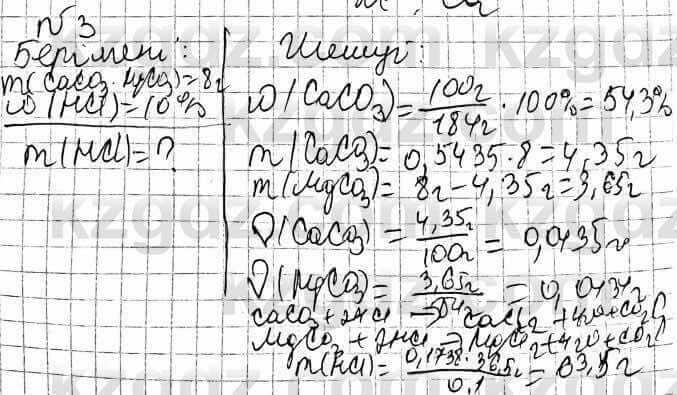 №3
Берілгені:
m(CaCO3·MgCO3)=8г
ω(HCl)=10%
m(HCl)=?
Шешуі:
ω(CaCO3)=100г/184г·100%=54,3%
m(CaCO3)=0,5435·8=4,35г
m(MgCO3)=8г-4,35г=3,65г
ϑ(CaCO3)=4,35г/100г=0,0435г
ϑ(MgCO3)=3,65г/84г=0,0434г
CaCO3+2HCl→CaCl2+H2O+CO2
MgCO3+2HCl→MgCl2+H2O+CO2
m(HCl)=0,1738·36,5г/0,1=63,5г